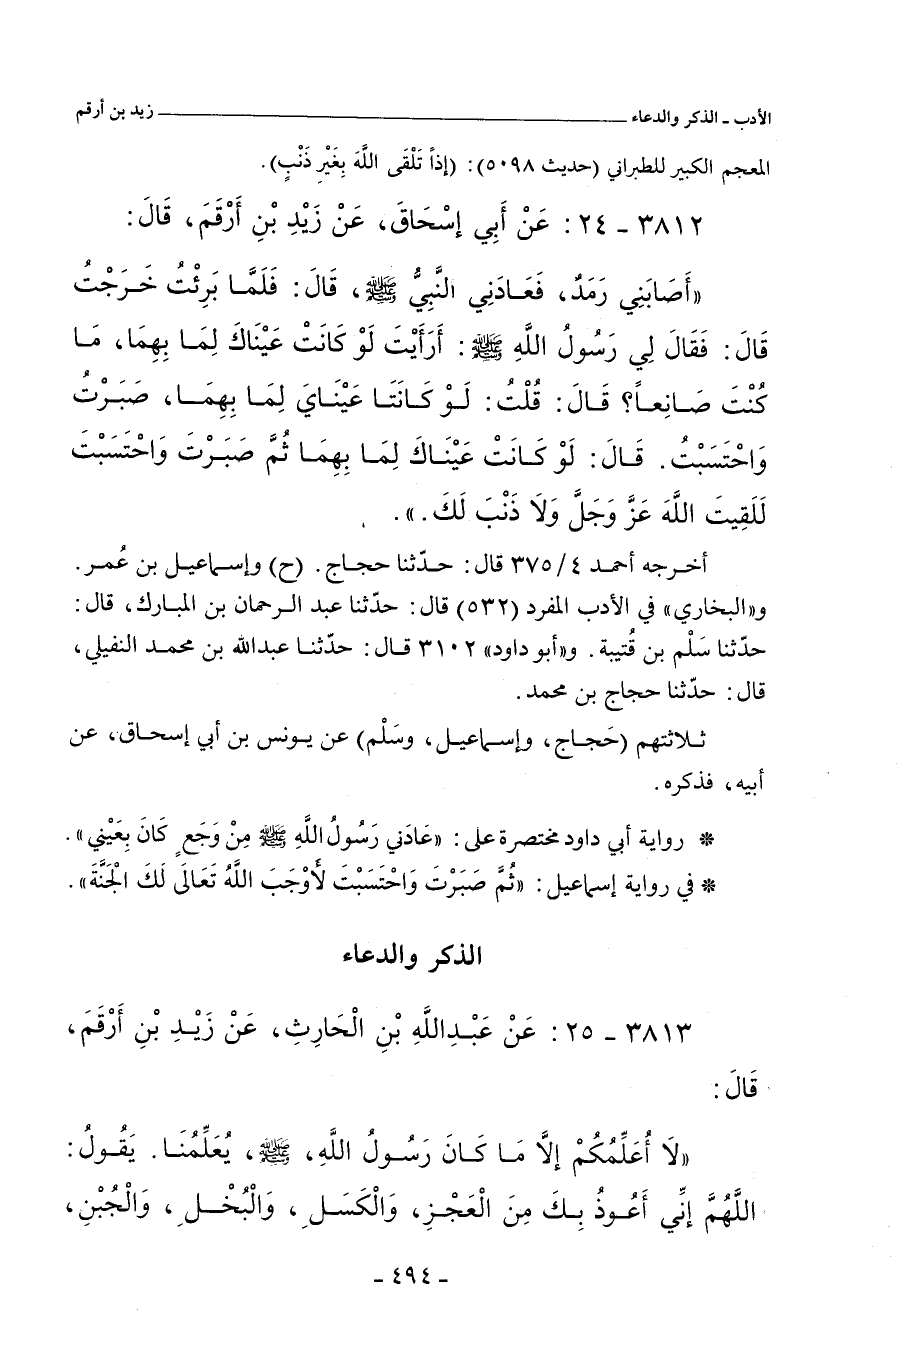 الأدب ـ الذكر والدعاء ـــــــــــــــ زيد بن أرقم
المعجم الكبير للطبراني (حديث ٥٠٩٨): (إذاً تَلْقَى اللَّهَ بِغَيْرِ ذَنْبٍ).
٣٨١٢ ـ ٢٤: عَنْ أَبِي إِسْحَاقَ، عَنْ زَيْدِ بْنِ أَرْقَمَ، قَالَ:
«أَصَابَنِي رَمَدٌ، فَعَادَنِي النَّبِيُّ ﷺ، قَالَ: فَلَمَّا بَرِئْتُ خَرَجْتُ
قَالَ: فَقَالَ لِي رَسُولُ اللَّهِ ﷺ: أَرَأَيْتَ لَوْ كَانَتْ عَيْنَاكَ لِمَا بِهِمَا، مَا
كُنْتَ صَانِعاً؟ قَالَ: قُلْتُ: لَوْ كَانَتَا عَيْنَايَ لِمَا بِهِمَا، صَبَرْتُ
وَاحْتَسَبْتُ. قَالَ: لَوْ كَانَتْ عَيْنَاكَ لِمَا بِهِمَا ثُمَّ صَبَرْتَ وَاحْتَسَبْتَ
لَلَقِيتَ اللَّهَ عَزَّ وَجَلَّ وَلاَ ذَنْبَ لَكَ.».
أخرجه أحمد ٤/٣٧٥ قال: حدّثنا حجاج. (ح) وإسماعيل بن عُمر.
و«البخاري» في الأدب المفرد (٥٣٢) قال: حدّثنا عبد الرحمان بن المبارك، قال:
حدّثنا سَلْم بن قُتيبة. و«أبو داود» ٣١٠٢ قال: حدّثنا عبدالله بن محمد النفيلي،
قال: حدّثنا حجاج بن محمد.
ثلاثتهم (حَجاج، وإسماعيل، وسَلْم) عن يونس بن أبي إسحاق، عن
أبيه، فذكره.
* رواية أبي داود مختصرة على: «عَادَنِي رَسُولُ اللَّهِ ﷺ مِنْ وَجَعٍ كَانَ بِعَيْنِي».
* في رواية إسماعيل: «ثُمَّ صَبَرْتَ وَاحْتَسَبْتَ لَأَوْجَبَ اللَّهُ تَعَالَى لَكَ الْجَنَّةَ».
الذكر والدعاء
٣٨١٣ ـ ٢٥: عَنْ عَبْدِاللَّهِ بْنِ الْحَارِثِ، عَنْ زَيْدِ بْنِ أَرْقَمَ،
قَالَ:
«لاَ أُعَلِّمُكُمْ إِلاَّ مَا كَانَ رَسُولُ اللَّهِ، ﷺ، يُعَلِّمُنَا. يَقُولُ:
اللَّهُمَّ إِنِّي أَعُوذُ بِكَ مِنَ الْعَجْزِ، وَالْكَسَلِ، وَالْبُخْلِ، وَالْجُبْنِ،
ـ ٤٩٤ ـ